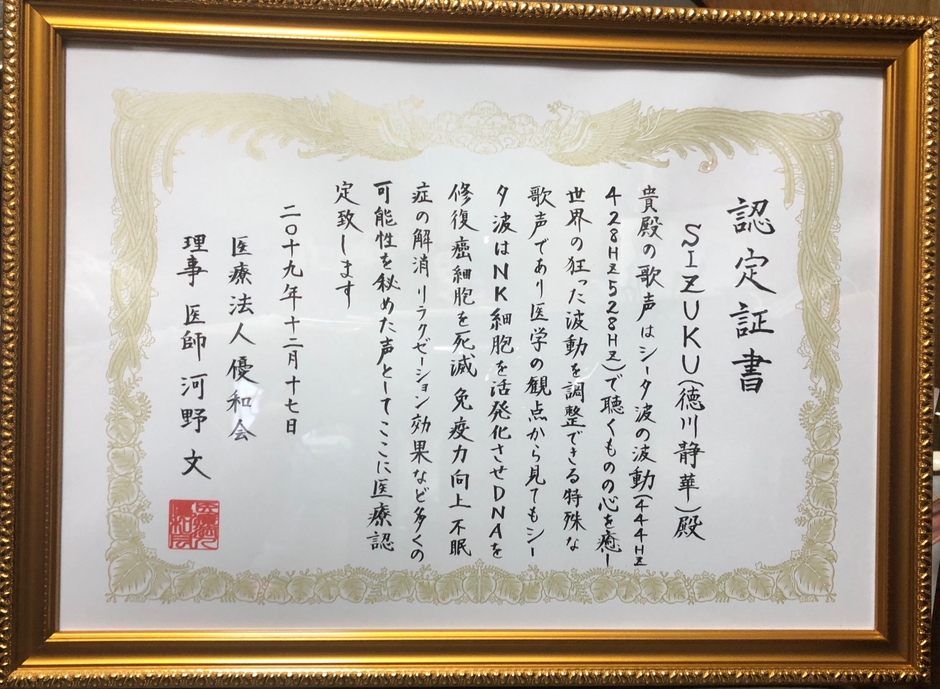 認定証書
SIZUKU(徳川静華)殿
貴殿の歌声はシータ波の波動(444HZ
428HZ528HZ)で聴くものの心を癒し
世界の狂った波動を調整できる特殊な
歌声であり医学の観点から見てもシー
タ波はNK細胞を活発化させDNAを
修復癌細胞を死滅 免疫力向上 不眠
症の解消 リラクゼーション効果など多くの
可能性を秘めた声としてここに医療認
定致します
二〇十九年十二月十七日
医療法人優和会
理事 医師 河野 文